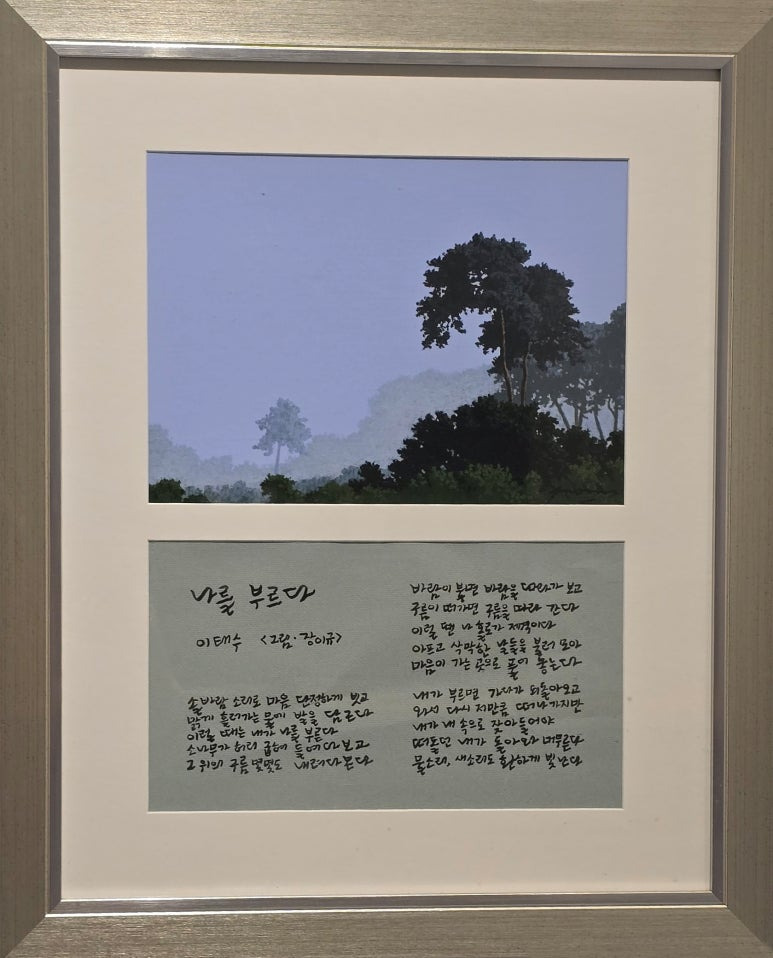 나를 부르다
이태수 <그림·장이규>
솔바람 소리로 마음 단정하게 빗고
맑게 흘러가는 물에 발을 담근다
이럴 때는 내가 나를 부른다
소나무가 허리 굽혀 들여다보고
그 위의 구름 몇몇도 내려다본다
바람이 불면 바람을 따라가 보고
구름이 떠가면 구름을 따라 간다
이럴 땐 나 홀로가 제격이다
아프고 삭막한 날들을 불러 모아
마음이 가는 곳으로 풀어 놓는다
내가 부르면 가다가 되돌아오고
와서 다시 저만큼 떠나가지만
내가 내 속으로 잦아들어야
떠돌던 내가 돌아와 머무른다
물소리, 새소리도 환하게 빛난다